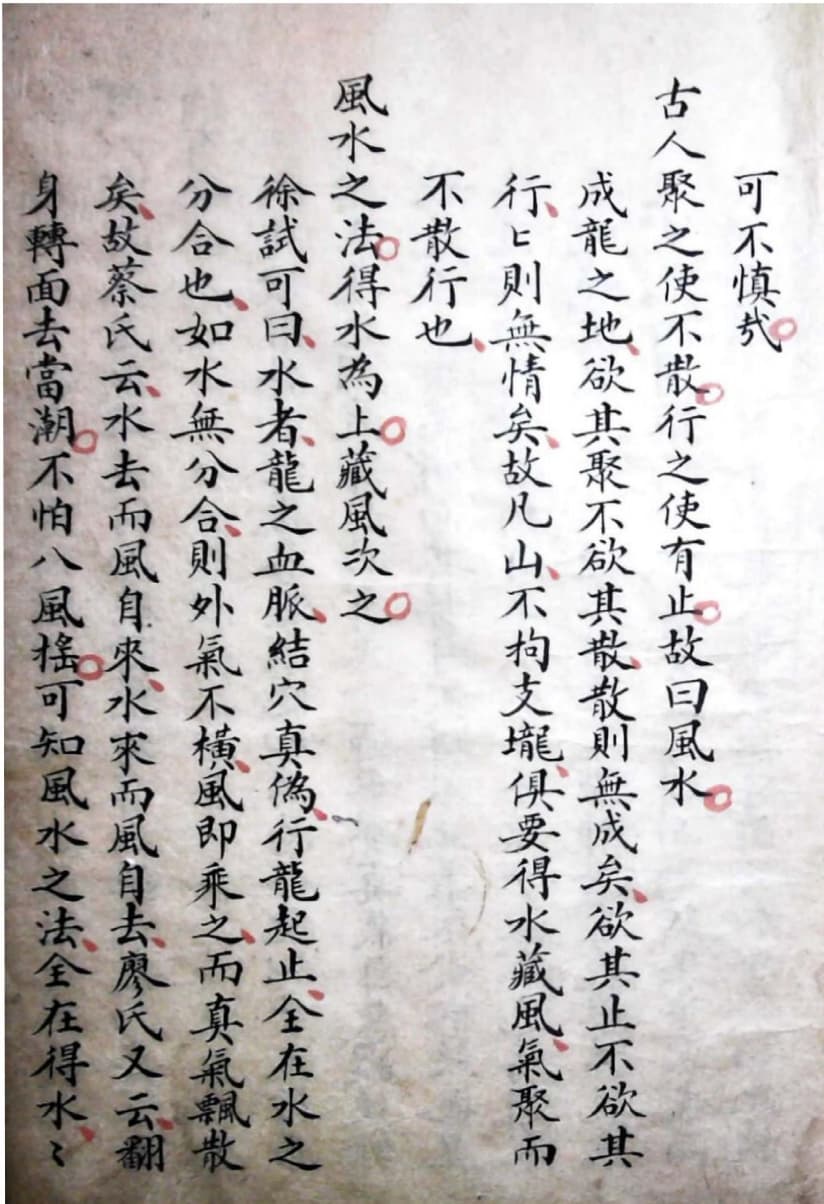 可不慎㢤。
古人聚之使不散。行之使有止。故曰風水。
成龍之地、欲其聚不欲其散、散則無成矣、欲其止不欲其
行、〻則無情矣、故凡山、不拘支壠、俱要得水藏風、氣聚而
不散行也、
風水之法。得水為上。藏風次之。
徐試可曰、水者、龍之血脈、結穴真偽、行龍起止、全在水之
分合也、如水無分合、則外氣不橫、風即乘之、而真氣飄散
矣、故蔡氏云、水去而風自來、水來而風自去、廖氏又云、翻
身轉面去當潮。不怕八風搖。可知風水之法、全在得水、〻